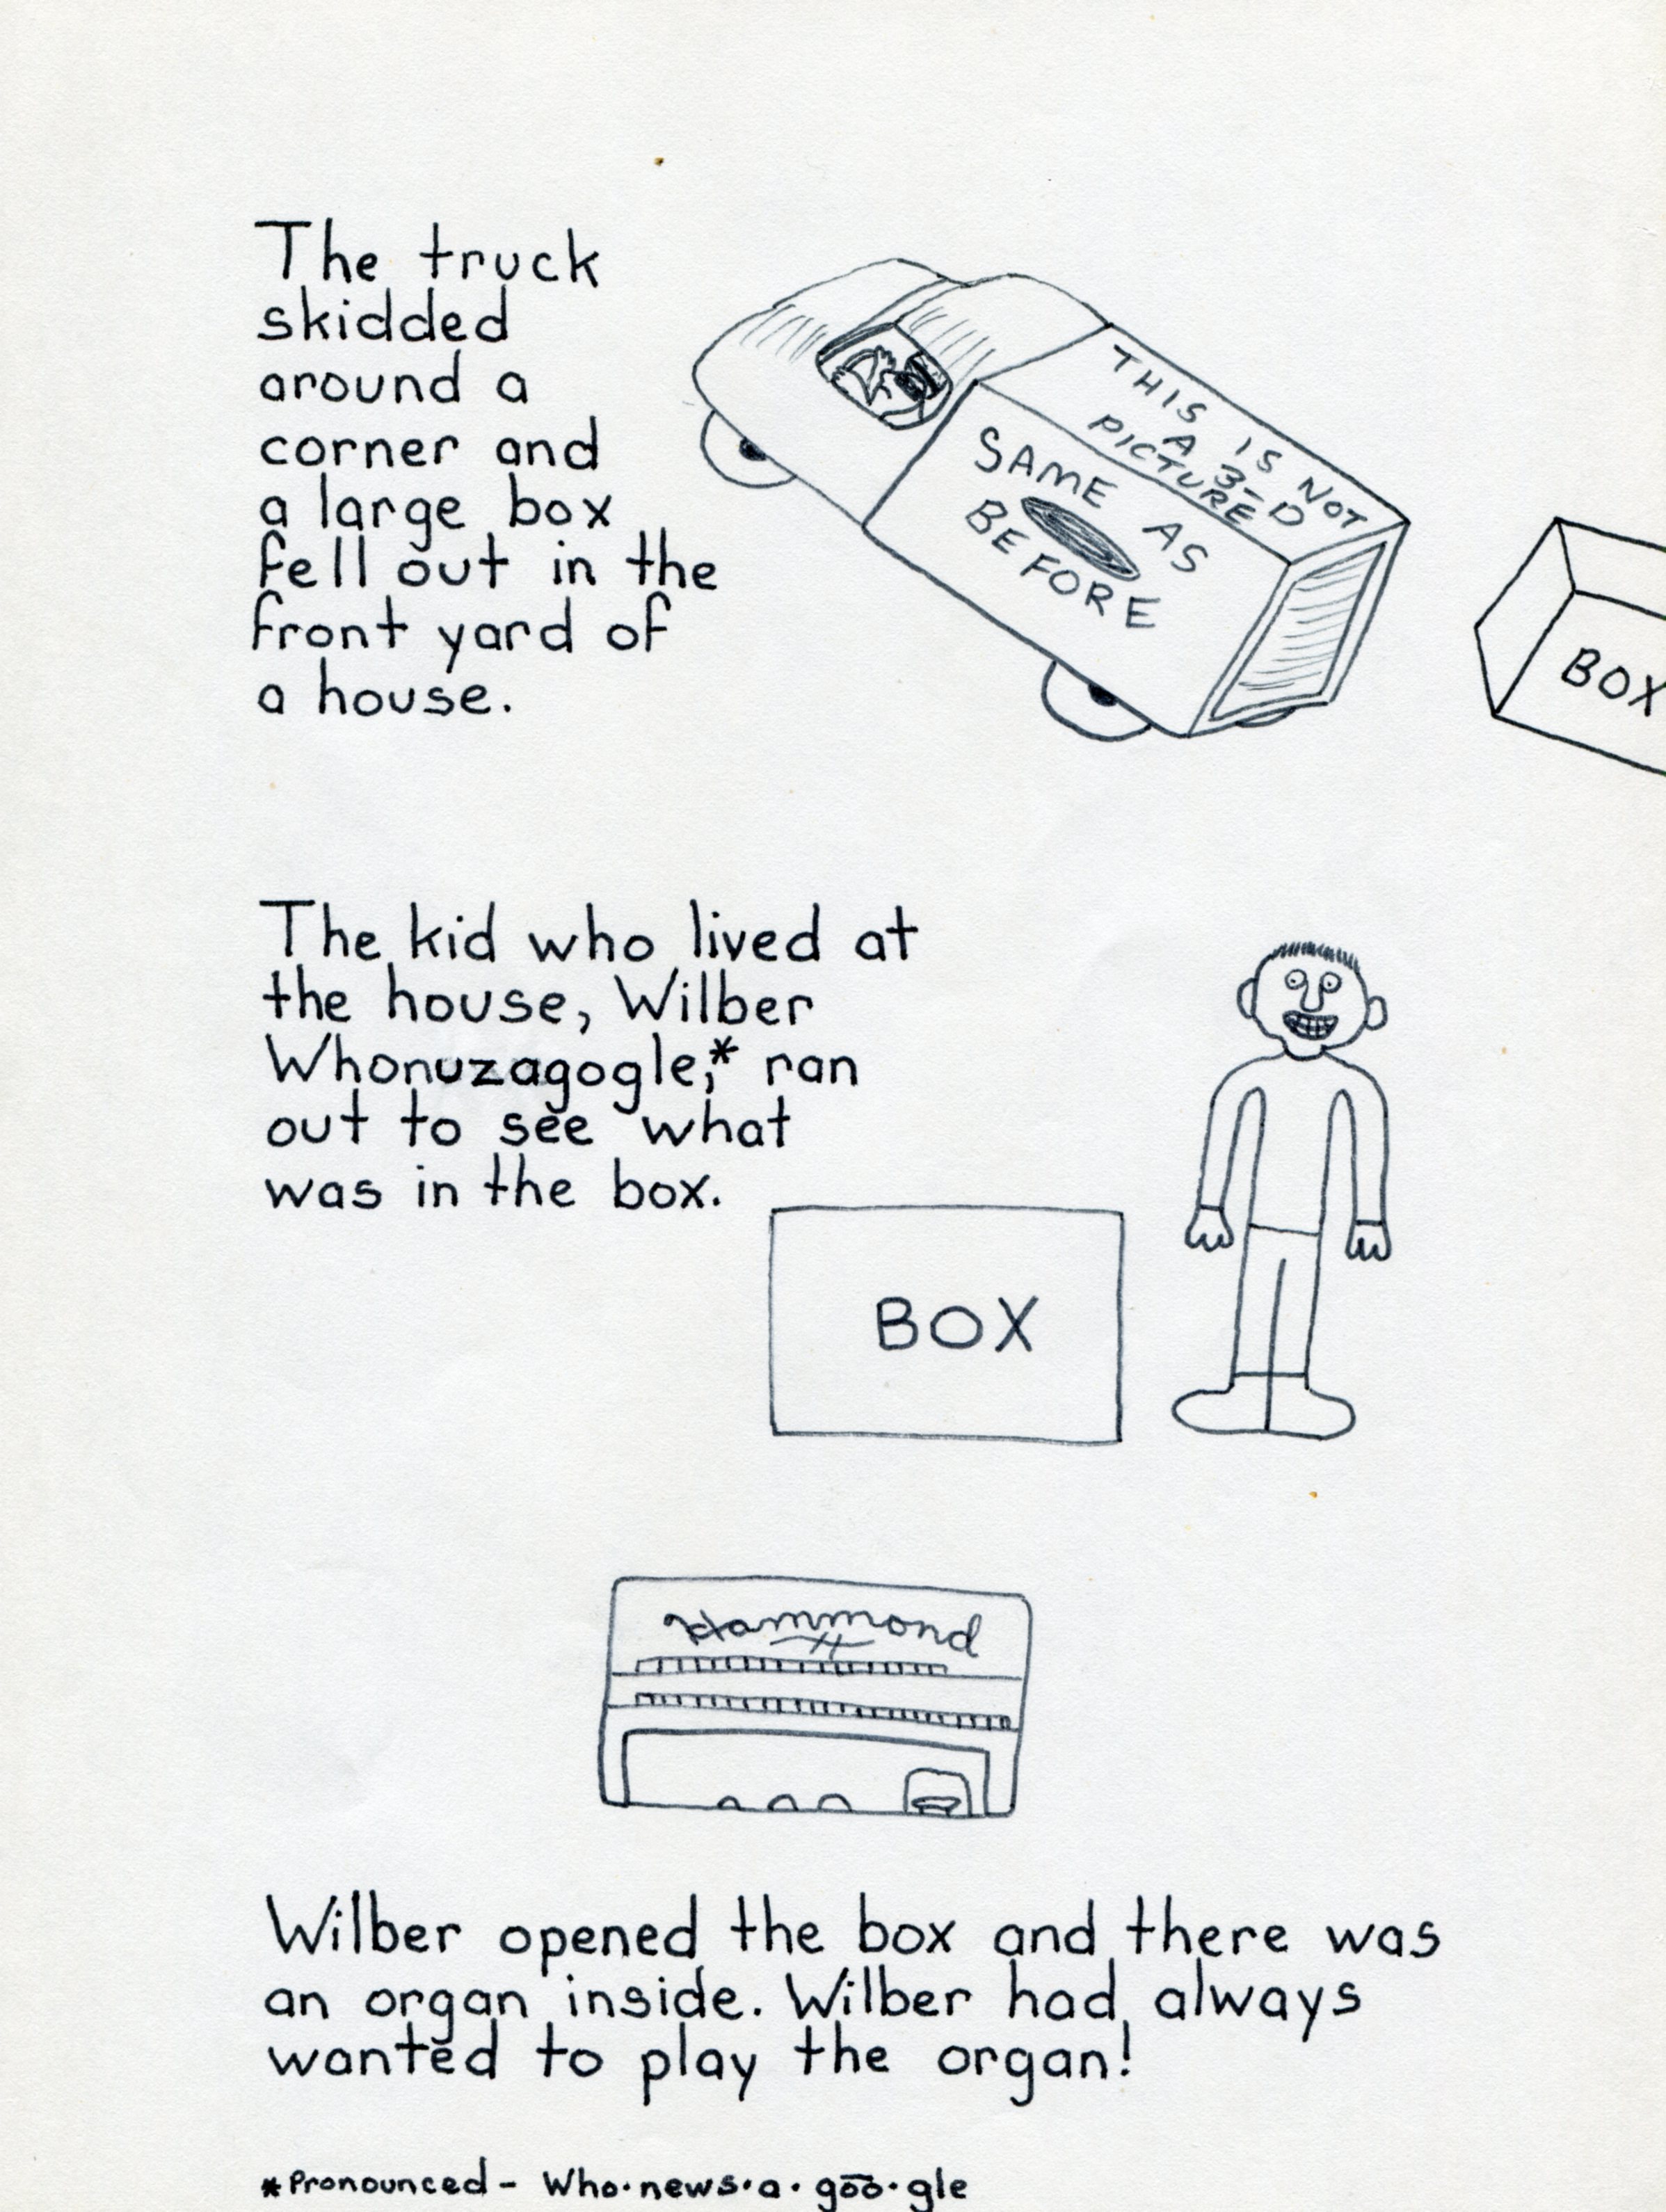 The truck
skidded
around a
corner and
a large box
fell out in the
front yard of
a house.
THIS IS NOT
A 3-D
PICTURE
SAME AS
BEFORE
BOX
The kid who lived at
the house, Wilber
Whonuzagogle,* ran
out to see what
was in the box.
BOX
Hammond
Wilber opened the box and there was
an organ inside. Wilber had always
wanted to play the organ!
*Pronounced - Who·news·a·go͞o·gle